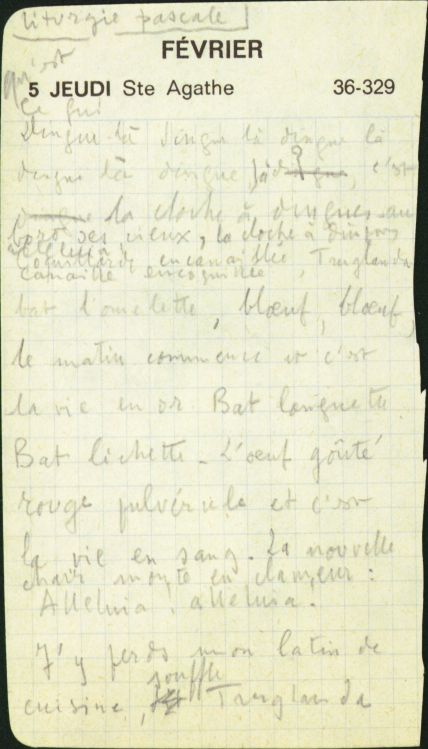 liturgie pascale
FÉVRIER
qu'est
5 JEUDI Ste Agathe 36-329
ce qui
dingue là dingue là dingue là
dingue là dingue, là dingue, c'est
la cloche à dingues au
bord des cieux, la cloche à dingues
encanaillée, Truglanda
canaille encoquillée
bat l'omelette, blœuf, blœuf,
le matin commence et c'est
la vie en or. Bat languette
Bat lichette. L'œuf goûté
rouge pulvérule et c'est
la vie en sang. La nouvelle
chair monte en clameur :
Alleluia, alleluia.
J'y perds mon latin de
souffle
cuisine, Truglanda